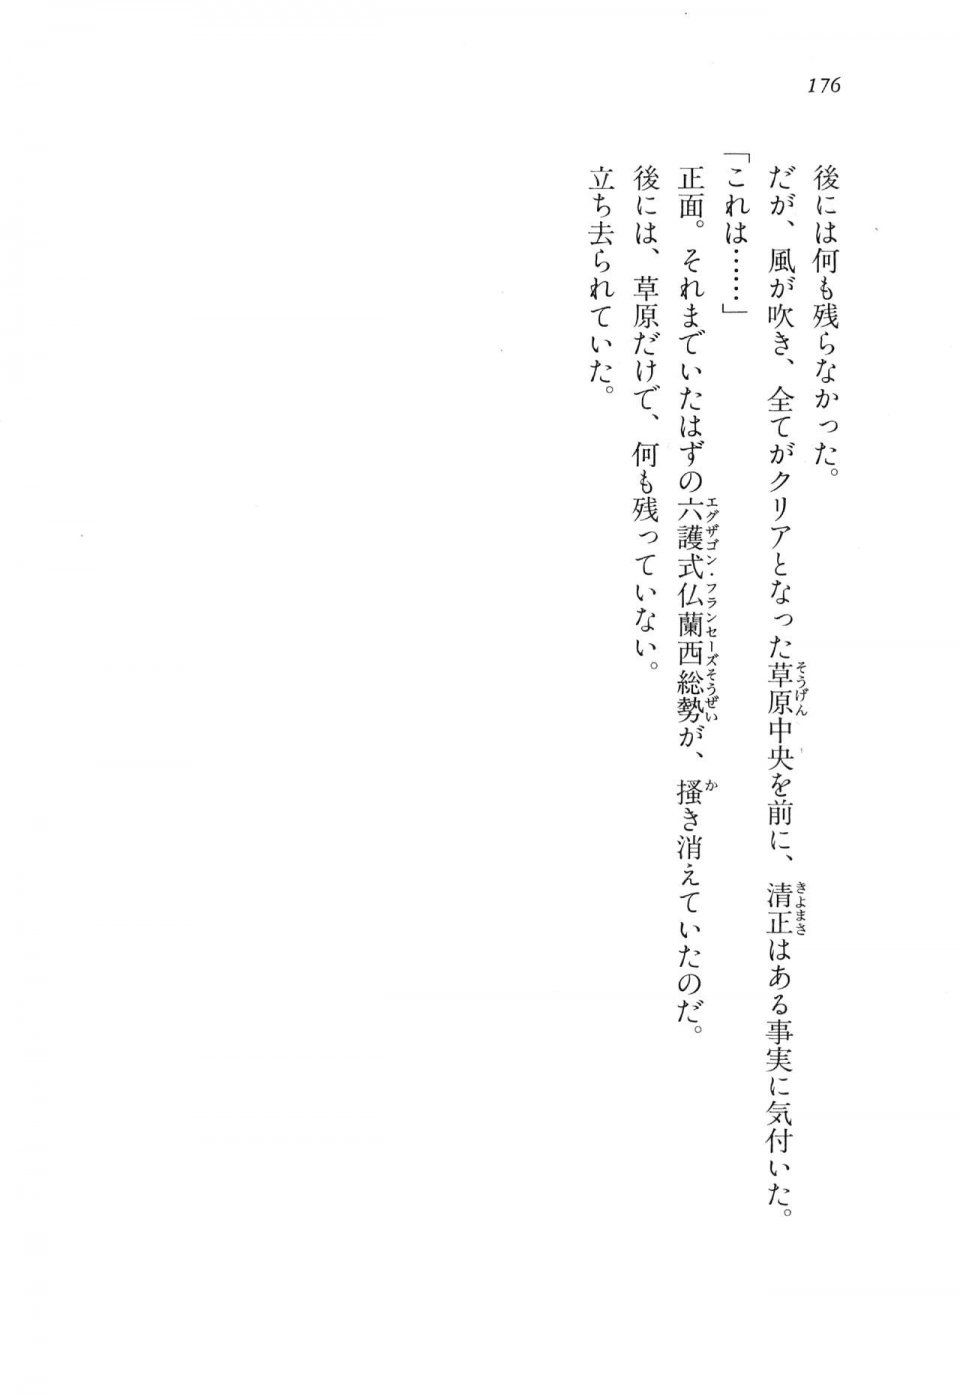 176
後には何も残らなかった。
だが、風が吹き、全てがクリアとなった草原中央を前に、清正はある事実に気付いた。
そうげん
きよまさ
「これは……」
正面。それまでいたはずの六護式仏蘭西総勢が、掻き消えていたのだ。
エグザゴン・フランセーズそうぜい
か
後には、草原だけで、何も残っていない。
立ち去られていた。